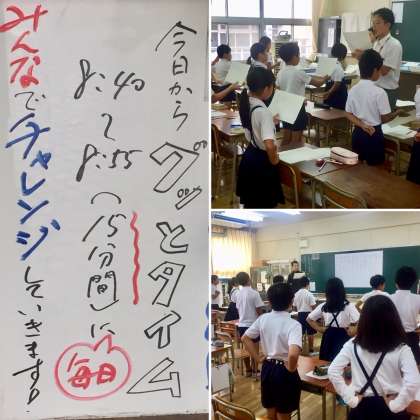 今日からグッとタイム
8:40〜8:55(15分間)に毎日
みんなでチャレンジしていきます!